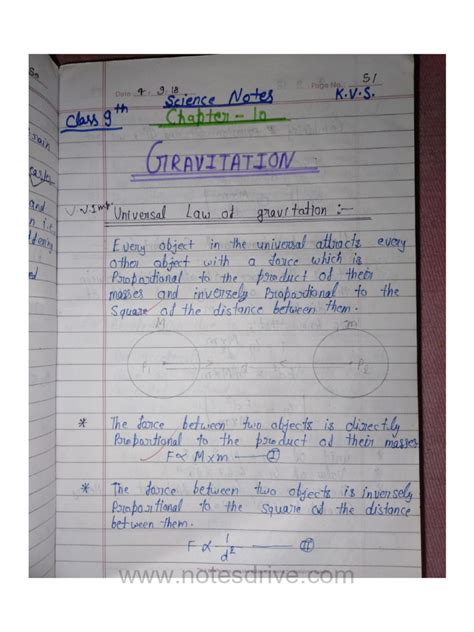 Date 4.9.18 Page No. 51
Science Notes K.V.S.
Class 9th Chapter - 10
GRAVITATION
V.V.Impt Universal Law of gravitation :-
Every object in the universal attracts every
other object with a force which is
Proportional to the product of their
masses and inversely Proportional to the
Square of the distance between them.
M m
P1 d P2
* The force between two objects is directly
Proportional to the product of their masses
F ∝ M×m — I
* The force between two objects is inversely
Proportional to the square of the distance
between them.
F ∝ 1/d² — II
www.notesdrive.com